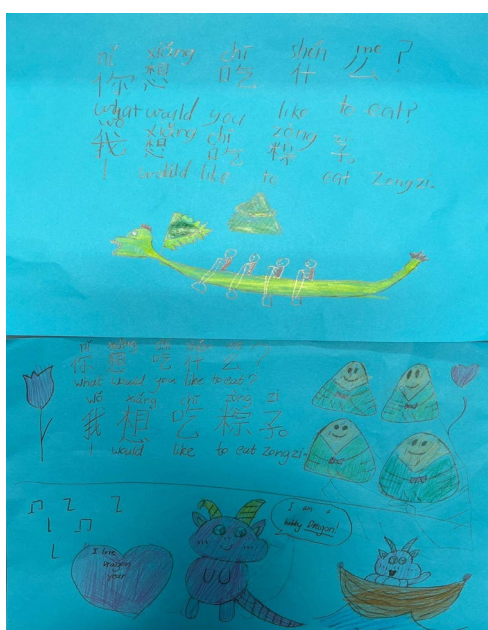 nǐ xiǎng chī shén me ?
你 想 吃 什 么 ?
what would you like to eat?
wǒ xiǎng chī zòng
我 想 吃 粽 子
I would like to eat Zongzi.
nǐ xiǎng chī shén me ?
你 想 吃 什 么 ?
what would you like to eat?
wǒ xiǎng chī zòng zi
我 想 吃 粽 子。
I would like to eat zongzi.
I am a
baby Dragon!
I love
Dragon
year